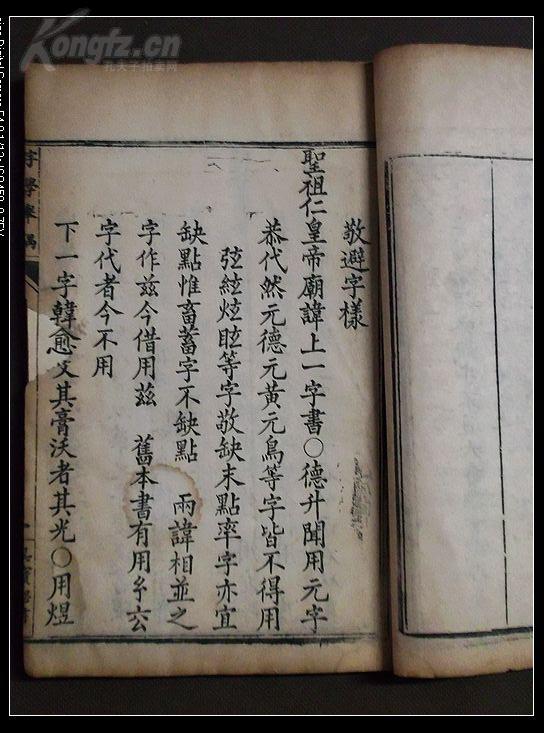 敬避字樣
聖祖仁皇帝廟諱上一字書○德升聞用元字
恭代然元德元黃元鳥等字皆不得用
弦絃炫眩等字敬缺末點率字亦宜
缺點惟畜蓄字不缺點 兩諱相並之
字作兹今借用茲 舊本書有用糸厶
字代者今不用
下一字韓愈文其膏沃者其光○用煜
字學舉隅
Kongfz.cn
孔夫子拍卖网